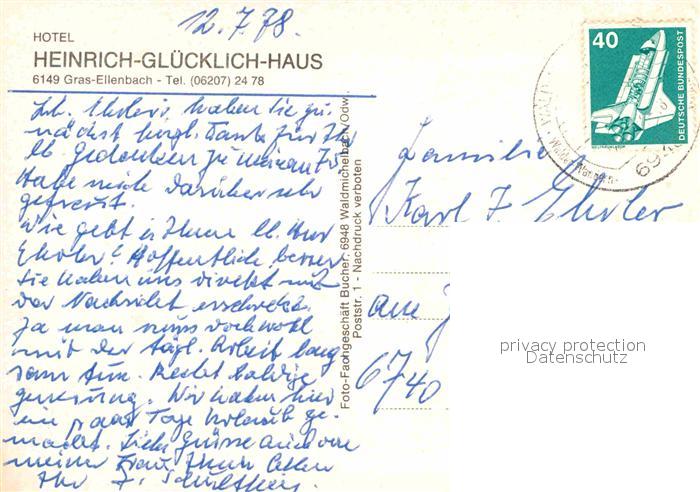 12.7.78.
HOTEL
HEINRICH-GLÜCKLICH-HAUS
6149 Gras-Ellenbach - Tel. (06207) 24 78
Lb. Ehrlers, haben Sie zu-
nächst herzl. Dank für Ihr
lb. Gedenken zu meinem 75
Habe mich darüber sehr
gefreut.
Wie geht es Ihnen lb. Herr
Ehrler? Hoffentlich besser
Sie haben uns direkt mit
der Nachricht erschreckt.
Ja man muss doch wohl
mit der tägl. Arbeit lang
sam tun. Recht baldige
genesung. Wir haben hier
ein paar Tage Urlaub ge-
macht. Liebe Grüsse auch von
meiner Frau Ihnen allen
Ihr
Foto-Fachgeschäft Bucher, 6948 Waldmichelbach/Odw.
Poststr. 1 - Nachdruck verboten
40
DEUTSCHE BUNDESPOST
694
Familie
Karl J. Ehrler
6740
privacy protection
Datenschutz